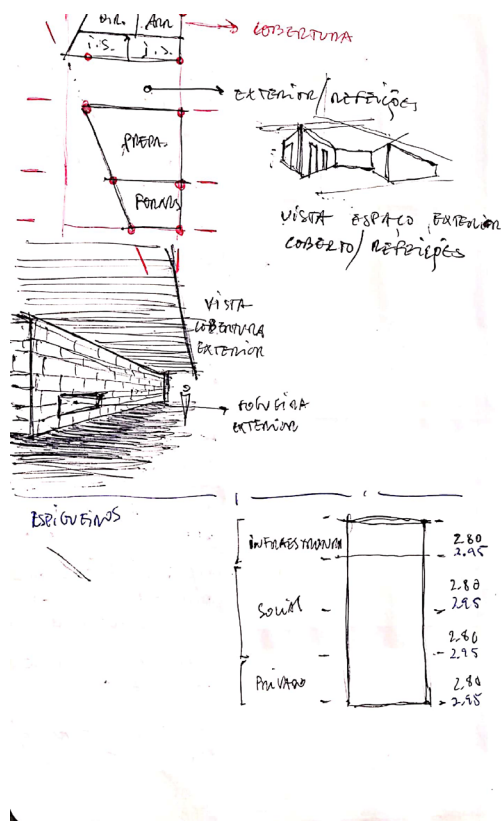 DIR. ARR
i.S. i.S.
COBERTURA
EXTERIOR/REFEIÇÕES
PREPA.
FORNOS
VISTA ESPAÇO EXTERIOR
COBERTO/REFEIÇÕES
VISTA
COBERTURA
EXTERIOR
FOGUEIRA
EXTERIOR
ESPIGUEIROS
INFRAESTRUTURA
2.80
2.95
SOCIAL
2.80
2.95
2.80
2.95
PRIVADO
2.80
2.95